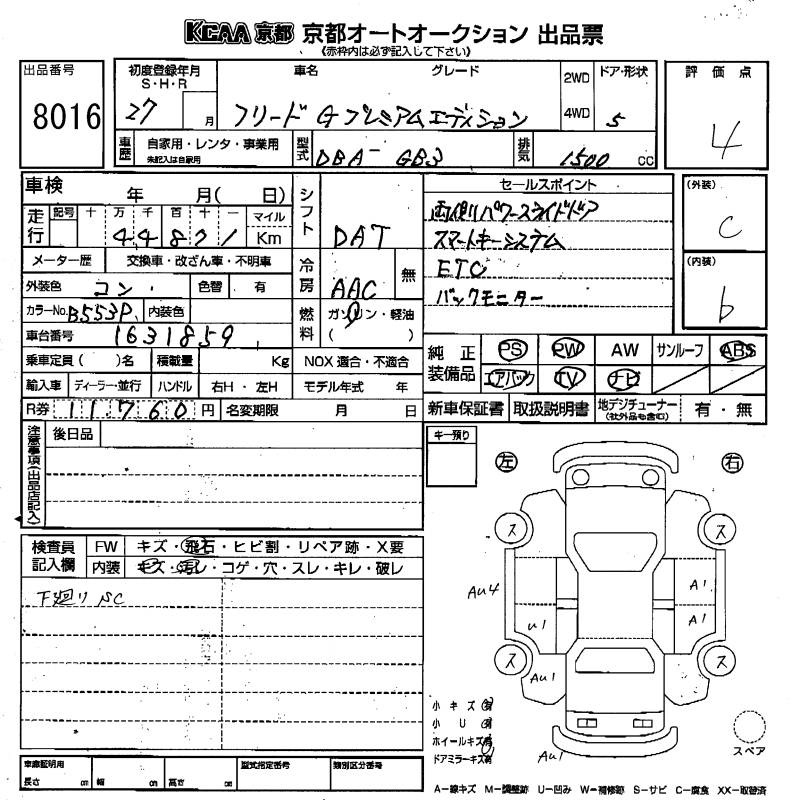 KCAA 京都 京都オートオークション 出品票
《赤枠内は必ず記入して下さい》
出品番号
8016
初度登録年月
S・H・R
27 月
車名 グレード
フリード Gプレミアムエディション
2WD
4WD
ドア・形状
5
評価点
4
車歴
自家用・レンタ・事業用
未記入は自家用
型式
DBA-GB3
排気
1500 cc
車検
年 月( 日)
シフト
DAT
セールスポイント
両側パワースライドドア
スマートキーシステム
ETC
バックモニター
(外装)
C
(内装)
b
走行
記号 十 万 千 百 十 一 マイル
44871 Km
メーター歴 交換車・改ざん車・不明車
冷房
AAC
無
外装色 コン 色替 有
カラーNo. B553P 内装色
燃料
ガソリン・軽油
( )
車台番号 1631859
乗車定員( )名 積載量 Kg NOX適合・不適合
輸入車 ディーラー・並行 ハンドル 右H・左H モデル年式 年
R券 11760円 名変期限 月 日
純正装備品
PS PW AW サンルーフ ABS
エアバック TV ナビ
新車保証書 取扱説明書 地デジチューナー
(社外品も含む)
有・無
注意事項(出品店記入)
後日品
キー預り
左 右
検査員記入欄
FW キズ・飛石・ヒビ割・リペア跡・X要
内装 キズ・汚レ・コゲ・穴・スレ・キレ・破レ
下廻りSC
ス ス
AU4 A1
U1 A1
ス ス
AU1
小キズ有
小U有
ホイールキズ有
ドアミラーキズ有
AU1
スペア
車庫証明用
長さ cm 幅 cm 高さ cm
型式指定番号
類別区分番号
A-線キズ M-調整跡 U-凹み W-補修跡 S-サビ C-腐食 XX-取替済